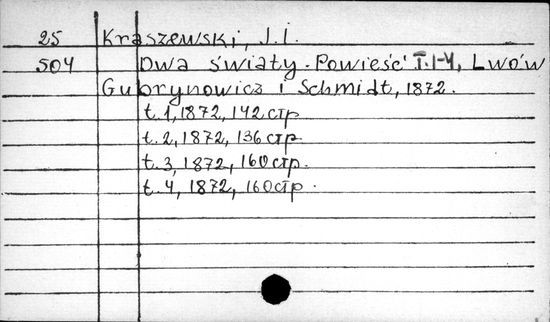 25 Kraszewski, J. I.
504 Dwa światy. Powieść T. I-4, Lwów
Gubrynowicz i Schmidt, 1872.
t. 1, 1872, 142 стр
t. 2, 1872, 136 стр.
t. 3, 1872, 160 стр.
t. 4, 1872, 160 стр.